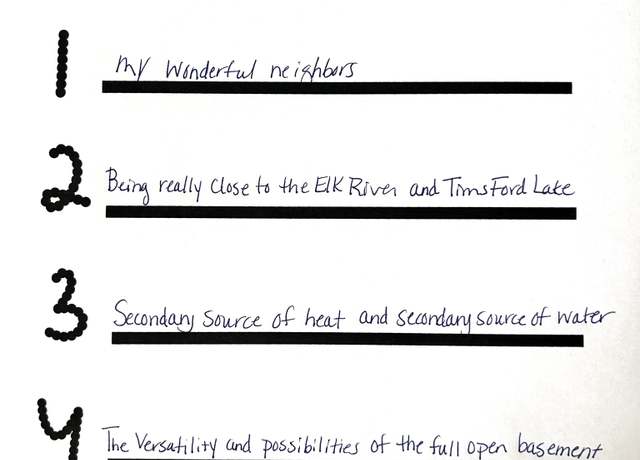 1 My wonderful neighbors
2 Being really close to the Elk River and Tims Ford Lake
3 Secondary source of heat and secondary source of water
4 The Versatility and possibilities of the full open basement